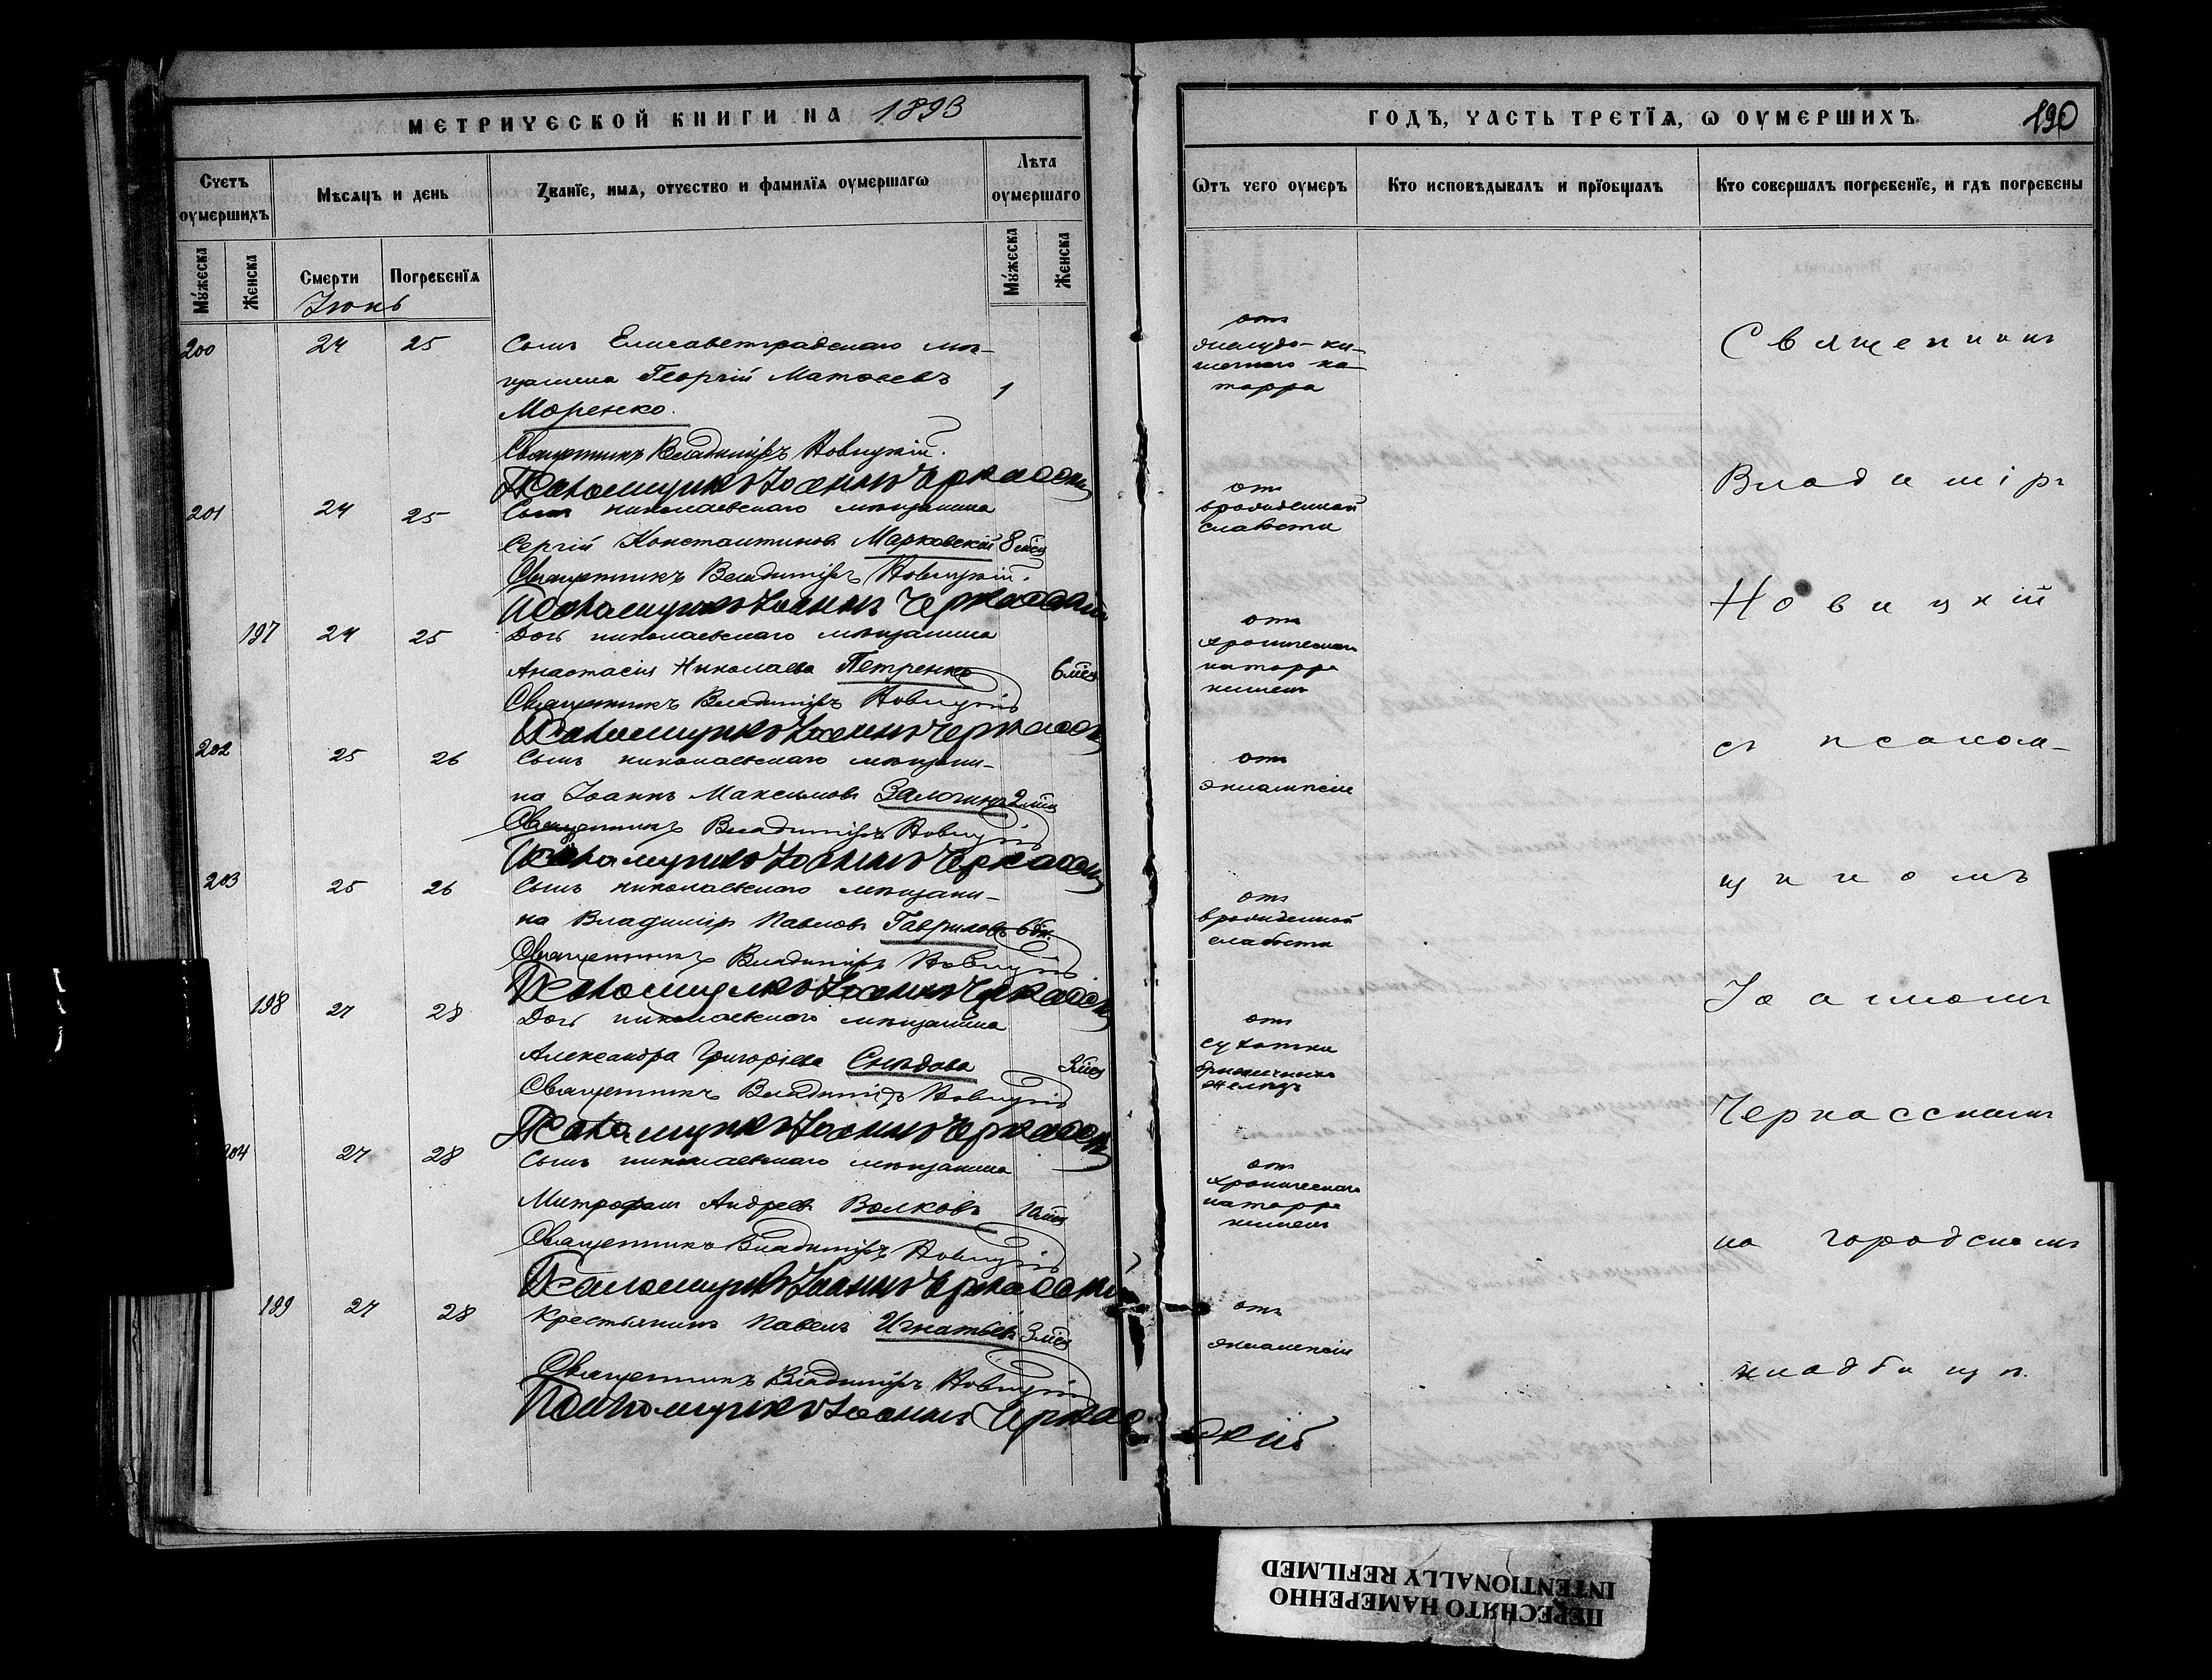 МЕТРИЧЕСКОЙ КНИГИ НА 1893
Счетъ оумершихъ
Мѣсяцъ и день
Званїе, имѧ, отчество и фамилїѧ оумершагѡ
Лѣта оумершаго
Мꙋжеска
Женска
Смерти
Погребенїѧ
Мꙋжеска
Женска
Іюнь
200 24 25 Сынъ Елисаветградскаго мѣ-
щанина Георгій Матѳеевъ 1
Моренко.
Священникъ Владиміръ Новицкій.
Псаломщикъ Іоаннъ Черкасскій
201 24 25 Сынъ николаевскаго мѣщанина
Сергій Константиновъ Марковскій 8 мѣс
Священникъ Владиміръ Новицкій.
Псаломщикъ Іоаннъ Черкасскій
197 24 25 Дочь николаевскаго мѣщанина
Анастасія Николаева Петренко 6 мѣс
Священникъ Владиміръ Новицкій
Псаломщикъ Іоаннъ Черкасскій
202 25 26 Сынъ николаевскаго мѣщани-
на Іоаннъ Максимовъ 2 мѣс
Священникъ Владиміръ Новицкій
Псаломщикъ Іоаннъ Черкасскій
203 25 26 Сынъ николаевскаго мѣщани-
на Владиміръ Павловъ Гавриловъ 6 дн.
Священникъ Владиміръ Новицкій
Псаломщикъ Іоаннъ Черкасскій
198 27 28 Дочь николаевскаго мѣщанина
Александра Григоріева 3 мѣс
Священникъ Владиміръ Новицкій
Псаломщикъ Іоаннъ Черкасскій
204 27 28 Сынъ николаевскаго мѣщанина
Митрофанъ Андреевъ Волковъ 10 мѣс
Священникъ Владиміръ Новицкій
Псаломщикъ Іоаннъ Черкасскій
199 27 28 Крестьянинъ Павелъ Игнатьевъ 3 мѣс
Священникъ Владиміръ Новицкій
Псаломщикъ Іоаннъ Черкас
скій
ГОДЪ, ЧАСТЬ ТРЕТЇѦ, Ѡ ОУМЕРШИХЪ. 190
Ѿтъ чего оумеръ
Кто исповѣдывалъ и прїобщалъ
Кто совершалъ погребенїе, и гдѣ погребены
отъ
желудо-ки-
шечнаго ка-
тарра
отъ
врожденной
слабости
отъ
хроническаго
катарра
кишекъ
отъ
эклампсіи
отъ
врожденной
слабости
отъ
сухотки
брыжечныхъ
железъ
отъ
хроническаго
катарра
кишекъ
отъ
эклампсіи
Священникъ
Владиміръ
Новицкій
съ псалом-
щикомъ
Іоанномъ
Черкасскимъ
на городскомъ
кладбищѣ.
ПЕРЕСНЯТО НАМЕРЕННО
INTENTIONALLY REFILMED